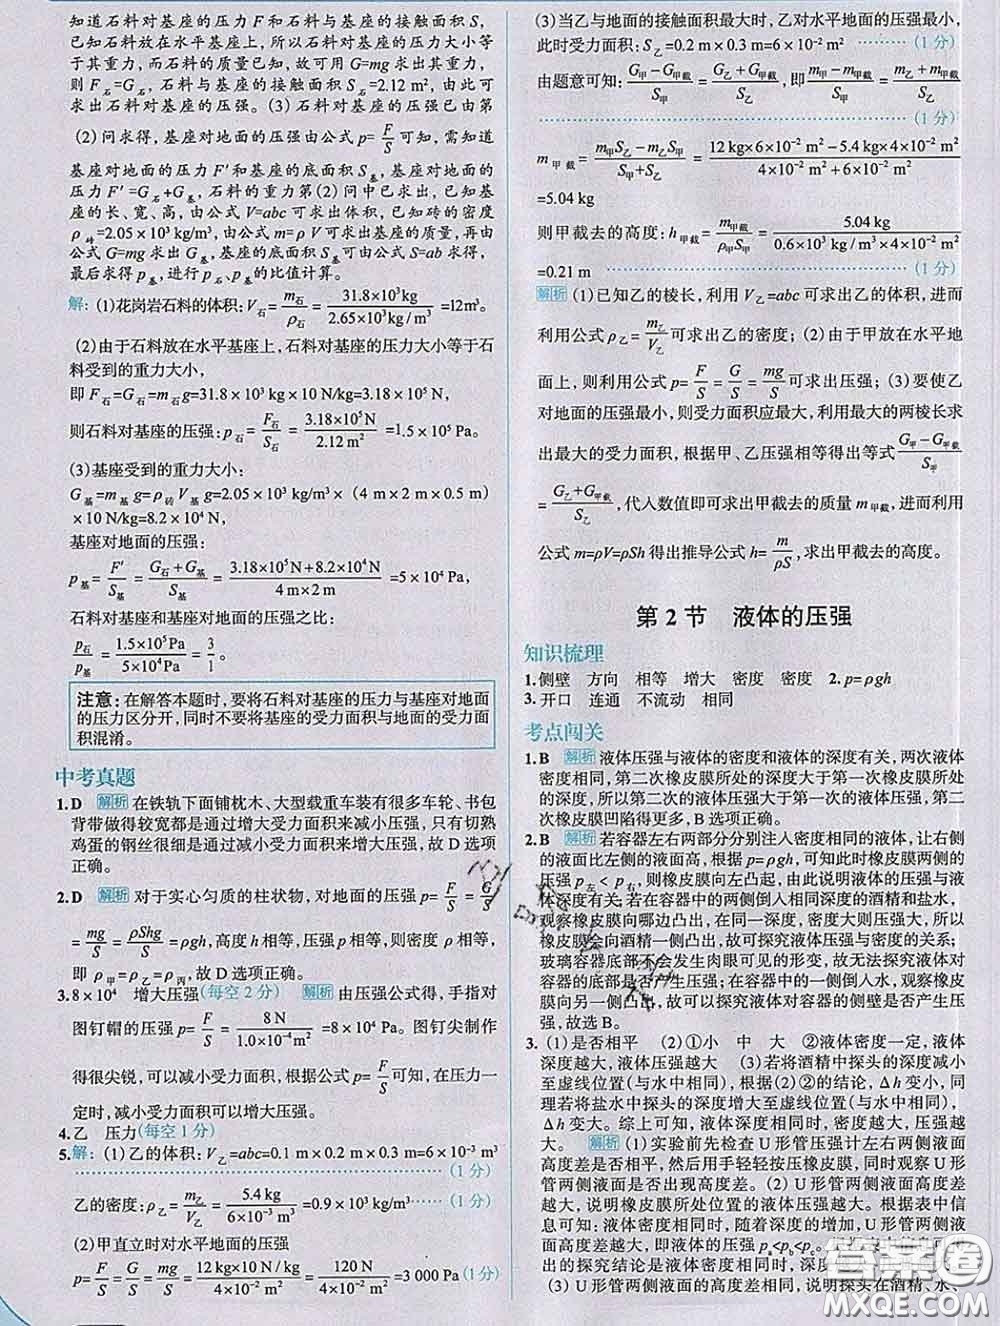 知道石料对基座的压力F和石料与基座的接触面积S,
已知石料放在水平基座上,所以石料对基座的压力大小等
于其重力,而石料的质量已知,故可用G=mg求出其重力,
则F石=G石,石料与基座的接触面积S石=2.12 m²,由此可
求出石料对基座的压强。(3)石料对基座的压强已由第
(2)问求得,基座对地面的压强由公式p=F/S可知,需知道
基座对地面的压力F′和基座的底面积S基,基座对地面的
压力F′=G石+G基,石料的重力第(2)问中已求出,已知基
座的长、宽、高,由公式V=abc可求出体积,已知砖的密度
ρ砖=2.05×10³ kg/m³,由公式m=ρV可求出基座的质量,再由
公式G=mg求出G基,基座的底面积S基由公式S=ab求得,
最后求得p基,进行p石、p基的比值计算。
解:(1)花岗岩石料的体积:V石=m石/ρ石=31.8×10³kg/2.65×10³kg/m³=12m³。
(2)由于石料放在水平基座上,石料对基座的压力大小等于石
料受到的重力大小,
即F石=G石=m石g=31.8×10³ kg×10 N/kg=3.18×10⁵ N,
则石料对基座的压强:p石=F石/S石=3.18×10⁵N/2.12 m²=1.5×10⁵ Pa。
(3)基座受到的重力大小:
G基=m基g=ρ砖V基g=2.05×10³ kg/m³×(4 m×2 m×0.5 m)
×10 N/kg=8.2×10⁴ N,
基座对地面的压强:
p基=F′/S基=G石+G基/S基=3.18×10⁵N+8.2×10⁴N/4 m×2 m=5×10⁴ Pa,
石料对基座和基座对地面的压强之比:
p石/p基=1.5×10⁵Pa/5×10⁴Pa=3/1。
注意:在解答本题时,要将石料对基座的压力与基座对地面
的压力区分开,同时不要将基座的受力面积与地面的受力面
积混淆。
中考真题
1.D 解析 在铁轨下面铺枕木、大型载重车装有很多车轮、书包
背带做得较宽都是通过增大受力面积来减小压强,只有切熟
鸡蛋的钢丝很细是通过减小受力面积来增大压强,故D选项
正确。
2.D 解析 对于实心匀质的柱状物,对地面的压强p=F/S=G/S
=mg/S=ρShg/S=ρgh,高度h相等,压强p相等,则密度ρ相等,
即ρ甲=ρ乙=ρ丙,故D选项正确。
3.8×10⁴ 增大压强(每空2分) 解析 由压强公式得,手指对
图钉帽的压强p=F/S=8 N/1.0×10⁻⁴ m²=8×10⁴ Pa。图钉尖制作
得很尖锐,可以减小受力面积,根据公式p=F/S可知,在压力一
定时,减小受力面积可以增大压强。
4.乙 压力(每空1分)
5.解:(1)乙的体积:V乙=abc=0.1 m×0.2 m×0.3 m=6×10⁻³ m³
(1分)
乙的密度:ρ乙=m乙/V乙=5.4 kg/6×10⁻³ m³=0.9×10³ kg/m³……(1分)
(2)甲直立时对水平地面的压强
p=F/S=G/S=mg/S=12 kg×10 N/kg/4×10⁻² m²=120 N/4×10⁻² m²=3 000 Pa(1分)
(3)当乙与地面的接触面积最大时,乙对水平地面的压强最小,
此时受力面积:S乙=0.2 m×0.3 m=6×10⁻² m²……(1分)
由题意可知:G甲-G甲截/S甲=G乙+G甲截/S乙,即m甲-m甲截/S甲=m乙+m甲截/S乙
(1分)
m甲截=m甲S乙-m乙S甲/S甲+S乙=12 kg×6×10⁻² m²-5.4 kg×4×10⁻² m²/4×10⁻² m²+6×10⁻² m²
=5.04 kg
则甲截去的高度:h甲截=m甲截/ρ甲S甲=5.04 kg/0.6×10³ kg/m³×4×10⁻² m²
=0.21 m……(1分)
解析 (1)已知乙的棱长,利用V乙=abc可求出乙的体积,进而
利用公式ρ乙=m乙/V乙可求出乙的密度;(2)由于甲放在水平地
面上,则利用公式p=F/S=G/S=mg/S可求出压强;(3)要使乙
对地面的压强最小,则受力面积应最大,利用最大的两棱长求
出最大的受力面积,根据甲、乙压强相等得出等式G甲-G甲截/S甲
=G乙+G甲截/S乙,代入数值即可求出甲截去的质量m甲截,进而利用
公式m=ρV=ρSh得出推导公式h=m/ρS,求出甲截去的高度。
第2节 液体的压强
知识梳理
1.侧壁 方向 相等 增大 密度 密度 2.p=ρgh
3.开口 连通 不流动 相同
考点闯关
1.B 解析 液体压强与液体的密度和液体的深度有关,两次液体
密度相同,第二次橡皮膜所处的深度大于第一次橡皮膜所处
的深度,所以第二次的液体压强大于第一次的液体压强,第二
次橡皮膜凹陷得更多,B选项正确。
2.B 解析 若容器左右两部分分别注入密度相同的液体,让右侧
的液面比左侧的液面高,根据p=ρgh,可知此时橡皮膜两侧的
压强p左<p右,则橡皮膜向左凸起,由此说明液体的压强与液
体深度有关;若在容器的两侧倒入相同深度的酒精和盐水,
观察橡皮膜向哪边凸出,在同一深度,密度大则压强大,所以
橡皮膜会向酒精一侧凸出,故可探究液体压强与密度的关系;
玻璃容器底部不会发生肉眼可见的形变,故无法探究液体对
容器的底部是否产生压强;在容器中的一侧倒入水,观察橡皮
膜向另一侧凸出,故可以探究液体对容器的侧壁是否产生压
强,故选B。
3.(1)是否相平 (2)①小 中 大 ②液体密度一定,液体
深度越大,液体压强越大 (3)若将酒精中探头的深度减小
至虚线位置(与水中相同),根据(2)②的结论,Δh变小,同理
若将盐水中探头的深度增大至虚线位置(与水中相同),
Δh变大。综上可知,液体密度越大,压强越
大。 解析 (1)实验前先检查U形管压强计左右两侧液面
高度差是否相平,然后用手轻轻按压橡皮膜,观察U形
管两侧液面是否出现高度差。(2)U形管两侧液面高度差
越大,说明橡皮膜所处位置的液体压强越大。根据表中信
息可知:液体密度相同时,随着深度的增加,U形管两侧液
面高度差越大,即液体的压强pa<pb<pc,
出的探究结论是液体密度
(3)U形管两侧液面的高度差相同,说明探头在酒精、水、
答案圈
MXQE.COM